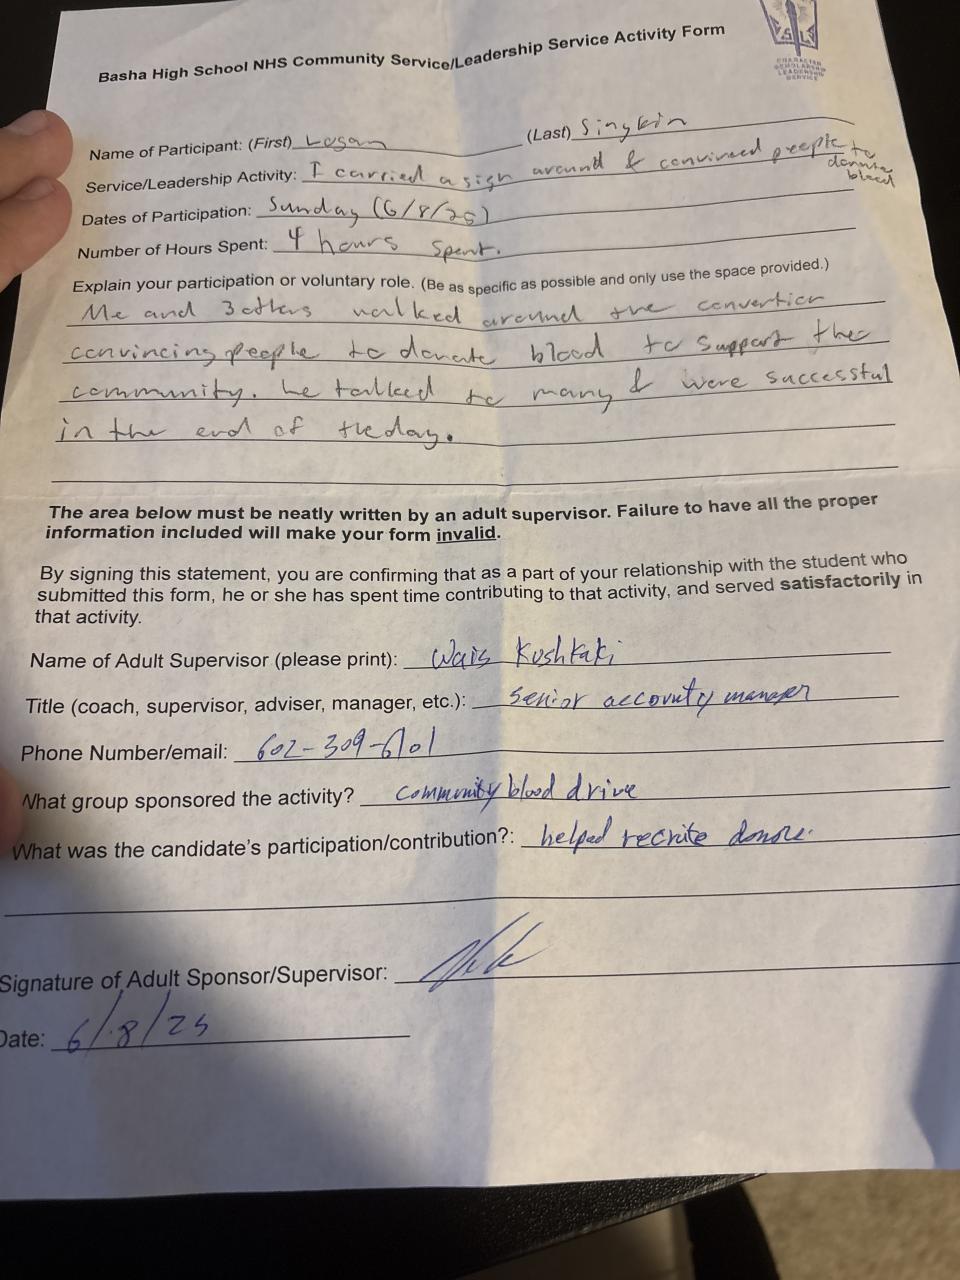 Basha High School NHS Community Service/Leadership Service Activity Form
CHARACTER
SCHOLARSHIP
LEADERSHIP
SERVICE
Name of Participant: (First) Logan (Last) Singkin
Service/Leadership Activity: I carried a sign around & convinced people to
donate
blood
Dates of Participation: Sunday (6/8/25)
Number of Hours Spent: 4 hours spent.
Explain your participation or voluntary role. (Be as specific as possible and only use the space provided.)
Me and 3 others walked around the convention
convincing people to donate blood to support the
community. We talked to many & were successful
in the end of the day.
The area below must be neatly written by an adult supervisor. Failure to have all the proper
information included will make your form invalid.
By signing this statement, you are confirming that as a part of your relationship with the student who
submitted this form, he or she has spent time contributing to that activity, and served satisfactorily in
that activity.
Name of Adult Supervisor (please print): Wais Koshkaki
Title (coach, supervisor, adviser, manager, etc.): senior accounty manager
Phone Number/email: 602-309-6101
What group sponsored the activity? community blood drive
What was the candidate's participation/contribution?: helped recrite
Signature of Adult Sponsor/Supervisor:
Date: 6/8/25